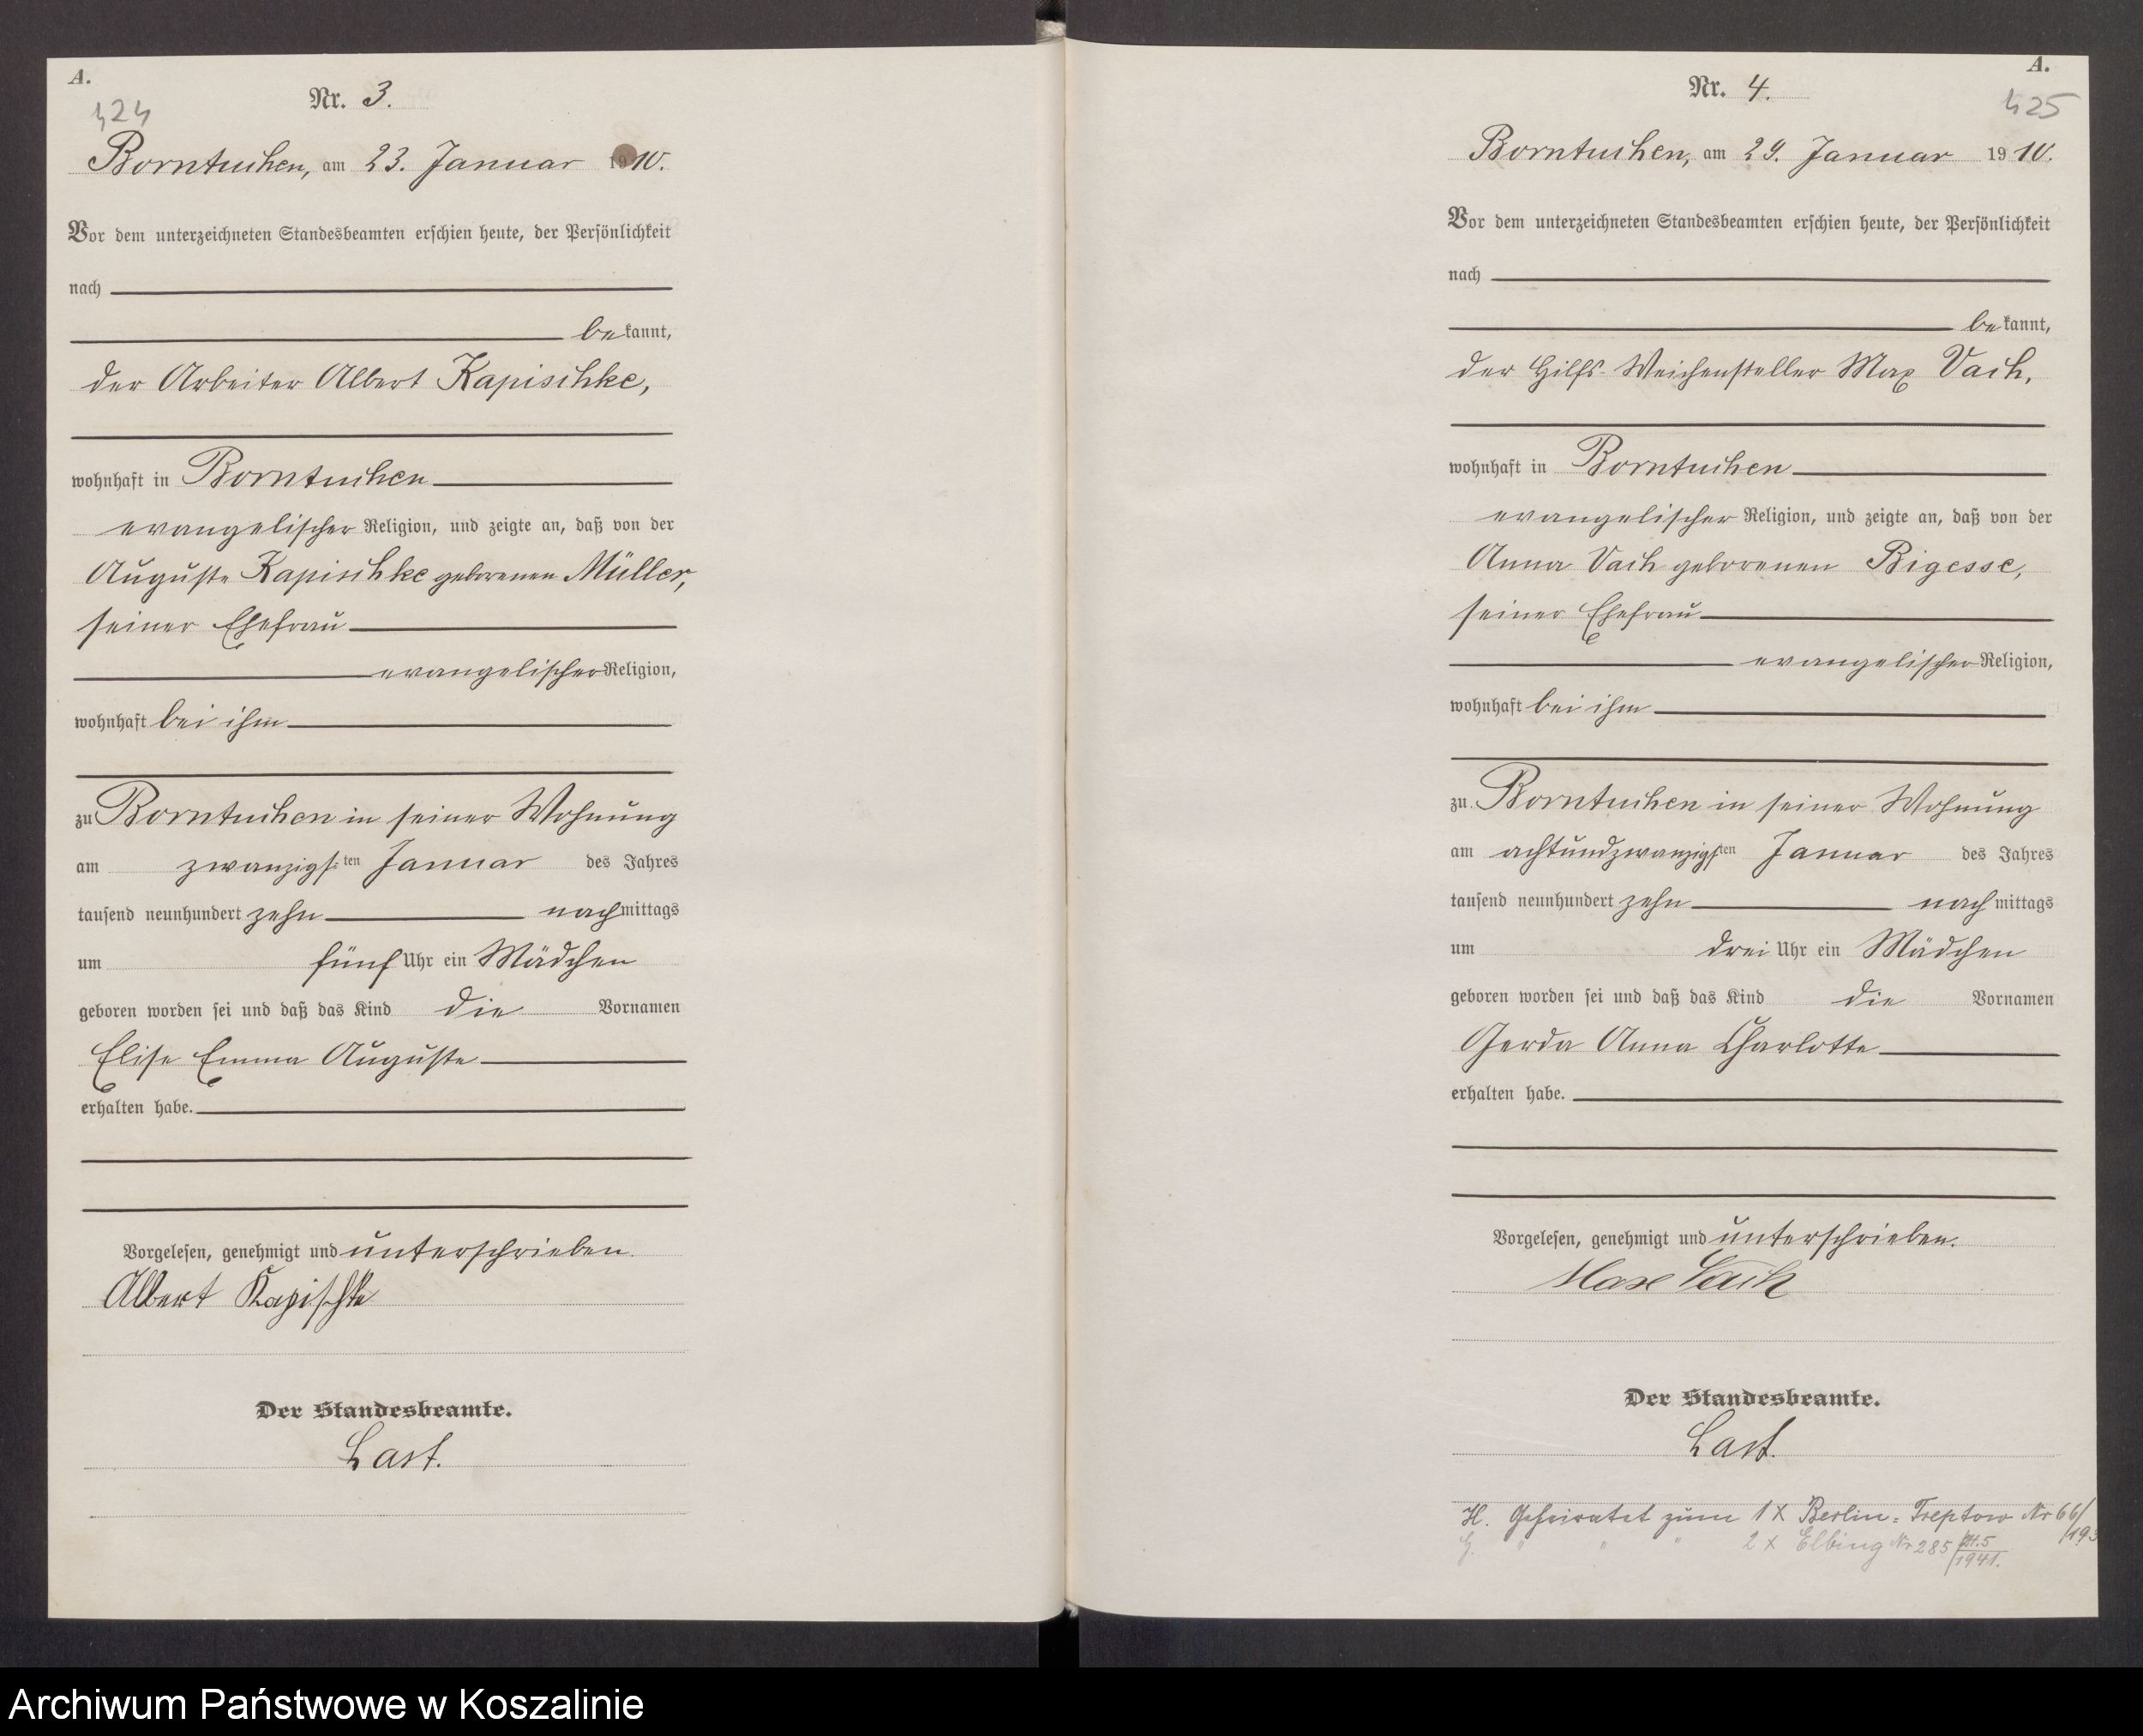 A.
424
Nr. 3.
Borntuchen, am 23. Januar 1910.
Vor dem unterzeichneten Standesbeamten erschien heute, der Persönlichkeit
nach
bekannt,
der Arbeiter Albert Kapischke,
wohnhaft in Borntuchen
evangelischer Religion, und zeigte an, daß von der
Auguste Kapischke geborenen Müller,
seiner Ehefrau
evangelischer Religion,
wohnhaft bei ihm
zu Borntuchen in seiner Wohnung
am zwanzigsten Januar des Jahres
tausend neunhundert zehn nachmittags
um fünf Uhr ein Mädchen
geboren worden sei und daß das Kind die Vornamen
Elise Emma Auguste
erhalten habe.
Vorgelesen, genehmigt und unterschrieben.
Albert Kapischke
Der Standesbeamte.
Last.
A.
425
Nr. 4.
Borntuchen, am 29. Januar 1910.
Vor dem unterzeichneten Standesbeamten erschien heute, der Persönlichkeit
nach
bekannt,
der Hilfs-Weichensteller Max Vach,
wohnhaft in Borntuchen
evangelischer Religion, und zeigte an, daß von der
Anna Vach geborenen Bigesse,
seiner Ehefrau
evangelischer Religion,
wohnhaft bei ihm
zu Borntuchen in seiner Wohnung
am achtundzwanzigsten Januar des Jahres
tausend neunhundert zehn nachmittags
um drei Uhr ein Mädchen
geboren worden sei und daß das Kind die Vornamen
Gerda Anna Charlotte
erhalten habe.
Vorgelesen, genehmigt und unterschrieben.
Max Vach
Der Standesbeamte.
Last.
H. Geheiratet zum 1 X Berlin-Treptow Nr 66/
/193
" " " 2 X Elbing Nr 285/
1941.
Archiwum Państwowe w Koszalinie